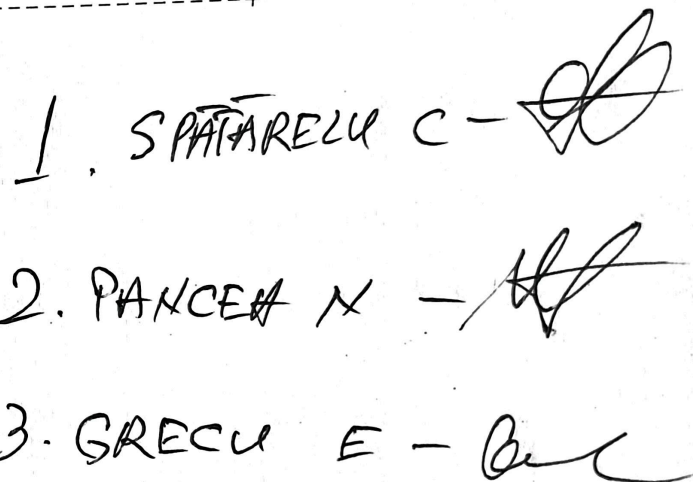 1. SPĀTĀRELU C -
2. PANCEA N -
3. GRECU E -